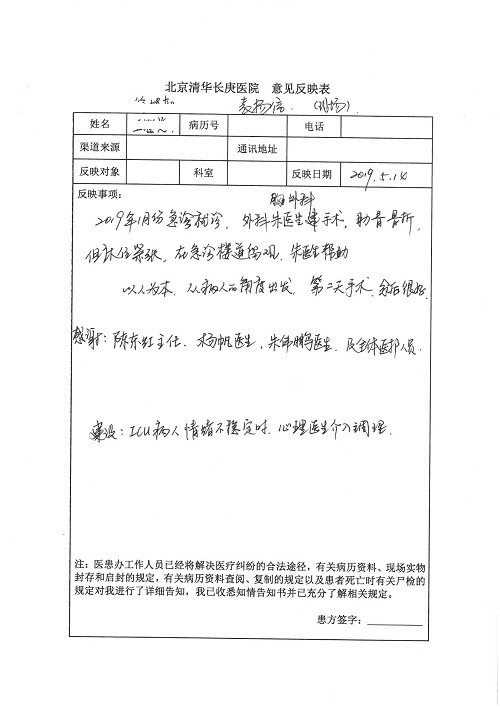 北京清华长庚医院 意见反映表
表扬信 (现场)
姓名 病历号 电话
渠道来源 通讯地址
反映对象 科室 反映日期 2019.5.14
反映事项:
胸外科
2019年1月份急诊就诊,外科朱医生建手术,肋骨骨折,
但床位紧张,在急诊楼道留观,朱医生帮助
以人为本,从病人的角度出发,第二天手术,愈后很好.
感谢:陈东红主任、杨帆医生,朱伟鹏医生、及全体医护人员.
建议:ICU病人情绪不稳定时,心理医生介入调理.
注:医患办工作人员已经将解决医疗纠纷的合法途径,有关病历资料、现场实物
封存和启封的规定,有关病历资料查阅、复制的规定以及患者死亡时有关尸检的
规定对我进行了详细告知,我已收悉知情告知书并已充分了解相关规定。
患方签字: